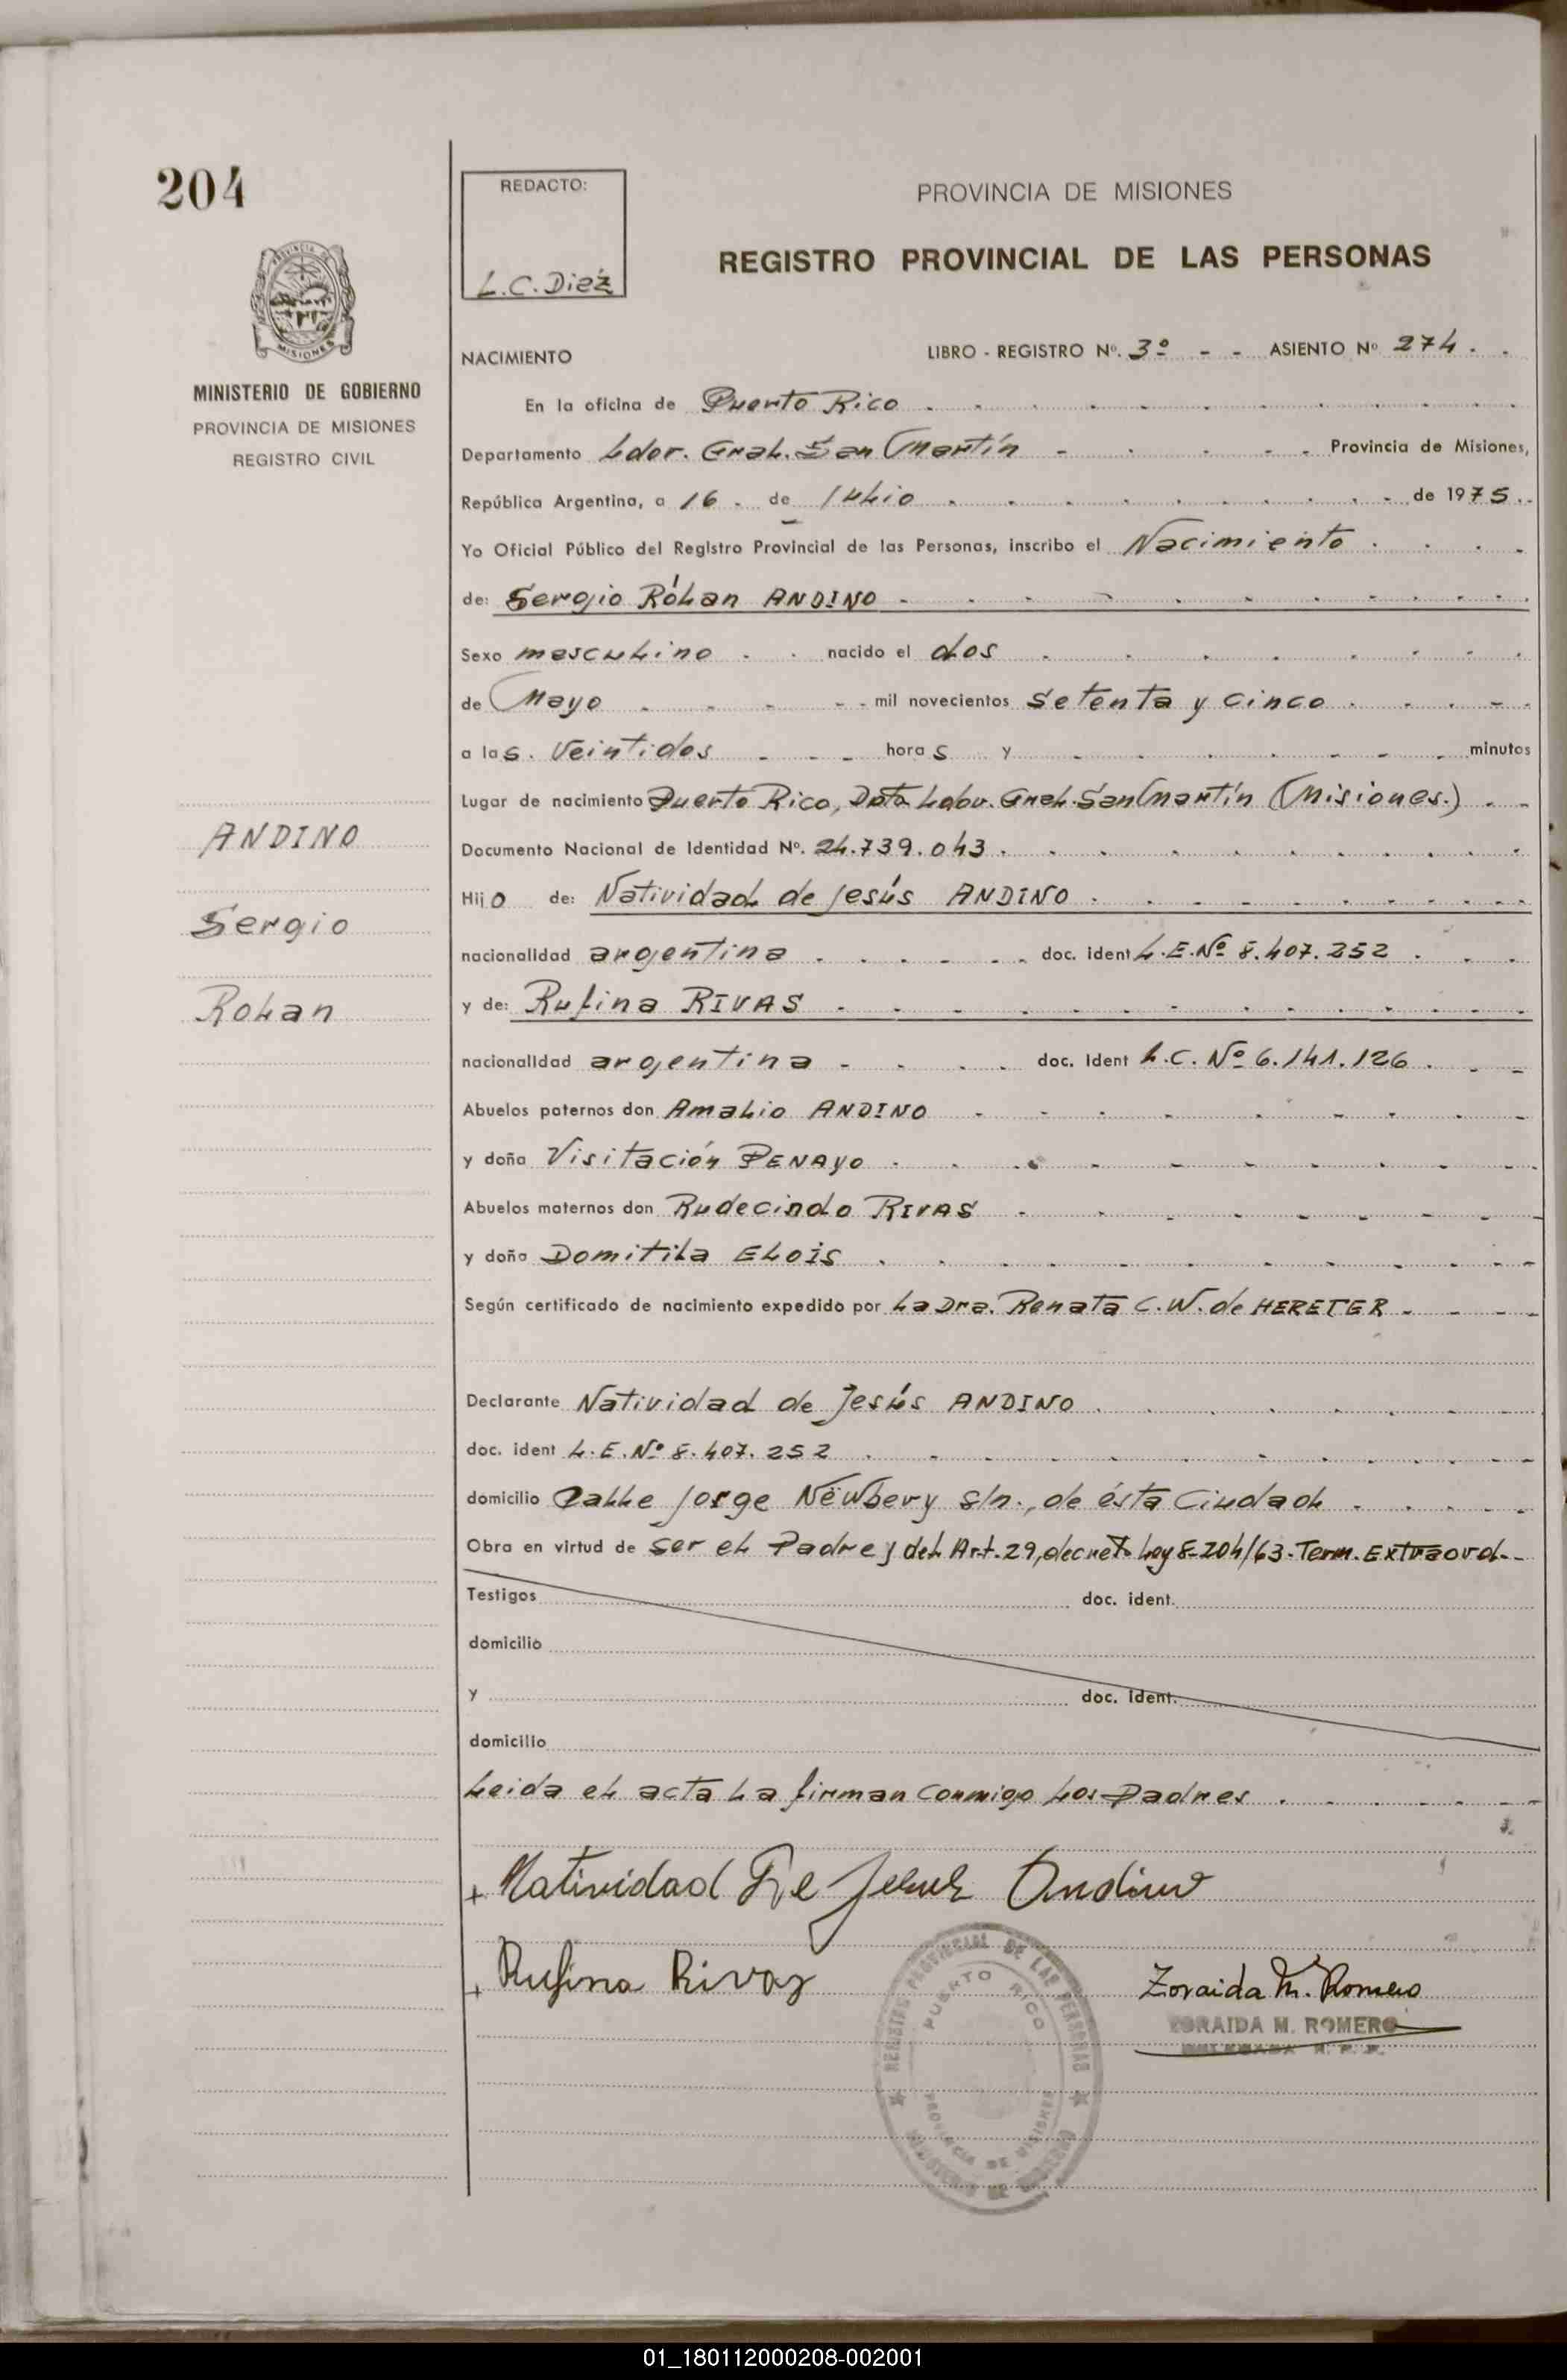 204
REDACTO:
L.C. Diéz
PROVINCIA DE MISIONES
REGISTRO PROVINCIAL DE LAS PERSONAS
MISIONES
MINISTERIO DE GOBIERNO
PROVINCIA DE MISIONES
REGISTRO CIVIL
ANDINO
Sergio
Rolan
NACIMIENTO LIBRO - REGISTRO Nº. 3º - - ASIENTO Nº 274 . .
En la oficina de Puerto Rico
Departamento Ldor. Gral. San Martín Provincia de Misiones,
República Argentina, a 16 de Julio de 1975
Yo Oficial Público del Registro Provincial de las Personas, inscribo el Nacimiento
de: Sergio Rólan ANDINO
Sexo masculino nacido el dos
de Mayo mil novecientos setenta y cinco
a las veintidos horas y minutos
Lugar de nacimiento Puerto Rico, Dpto. Labor. Gral. San Martín (Misiones.)
Documento Nacional de Identidad Nº. 24.739.043
Hijo de: Natividad de Jesús ANDINO
nacionalidad argentina doc. ident L.E.Nº 8.407.252
y de: Rufina RIVAS
nacionalidad argentina doc. ident L.C. Nº 6.141.126
Abuelos paternos don Amalio ANDINO
y doña Visitación PENAYO
Abuelos maternos don Rudecindo RIVAS
y doña Domitila ELOIS
Según certificado de nacimiento expedido por La Dra. Renata C.W. de HERETER
Declarante Natividad de Jesús ANDINO
doc. ident L.E.Nº 8.407.252
domicilio Calle Jorge Newbery s/n., de ésta Ciudad
Obra en virtud de ser el Padre y del Art. 29, decreto Ley 8-204/63. Term. Extraord.
Testigos doc. ident.
domicilio
y doc. ident.
domicilio
Leida el acta la firman conmigo los Padres
+ Natividad De Jesus Andino
+ Rufina Rivas
Zoraida M. Romero
ZORAIDA M. ROMERO
DELEGADA R. P. P.
REGISTRO PROVINCIAL DE LAS PERSONAS
PUERTO RICO
PROVINCIA DE MISIONES
MINISTERIO DE GOBIERNO
01_180112000208-002001